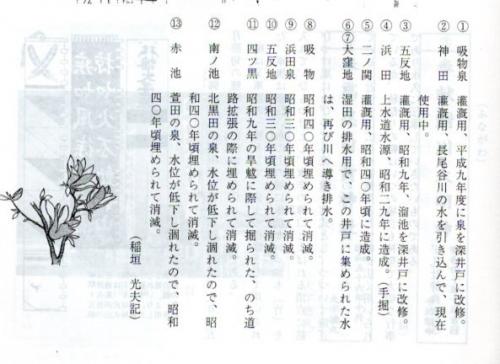 ① 吸物泉　灌漑用、平成九年度に泉を深井戸に改修。
② 神田　灌漑用、長尾谷川の水を引き込んで、現在
使用中。
③ 五反地　灌漑用、昭和九年、溜池を深井戸に改修。
④ 浜田　上水道水源、昭和二九年に造成。（手掘）
⑤ 二ノ関　灌漑用、昭和四〇年頃に造成。
⑥⑦ 大窪地　湿田の排水用で、この井戸に集められた水
は、再び川へ導き排水。
⑧ 吸物　昭和四〇年頃埋められて消滅。
⑨ 浜田泉　昭和三〇年頃埋められて消滅。
⑩ 五反地　昭和三〇年頃埋められて消滅。
⑪ 四ツ黒　昭和九年の旱魃に際して掘られた、のち道
路拡張の際に埋められて消滅。
⑫ 南ノ池　北黒田の泉、水位が低下し涸れたので、昭
和四〇年頃埋められて消滅。
⑬ 赤池　萱田の泉、水位が低下し涸れたので、昭和
四〇年頃埋められて消滅。
（稲垣　光夫記）